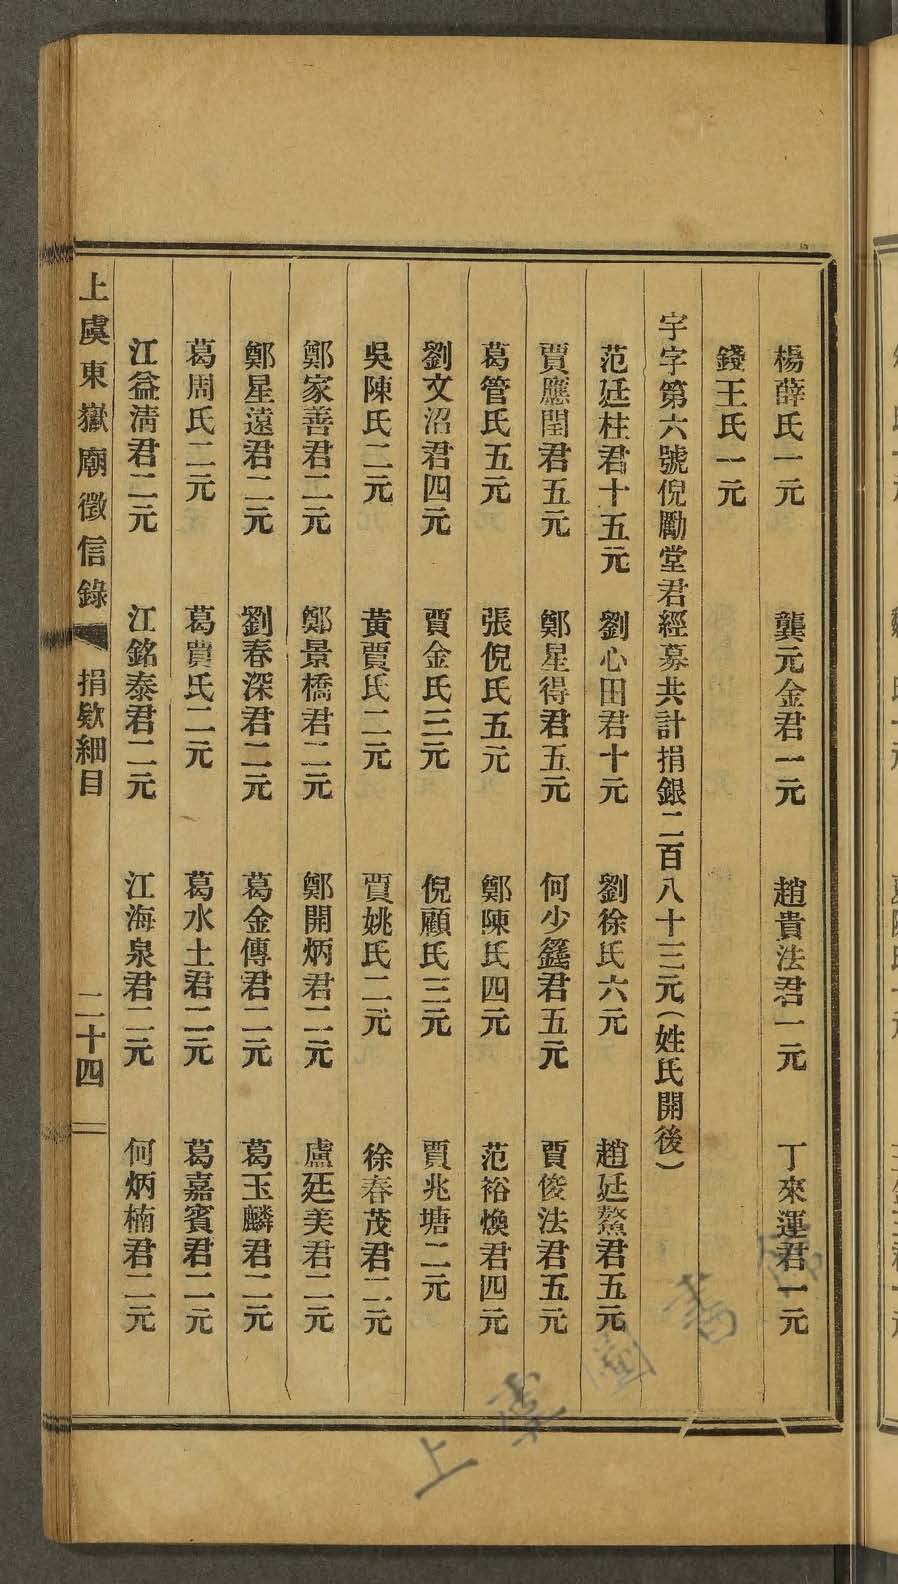 楊薛氏一元 龔元金君一元 趙貴法君一元 丁來運君一元
錢王氏一元
宇字第六號倪勵堂君經募共計捐銀二百八十三元(姓氏開後)
范廷柱君十五元 劉心田君十元 劉徐氏六元 趙廷鰲君五元
賈應閏君五元 鄭星得君五元 何少籛君五元 賈俊法君五元
葛管氏五元 張倪氏五元 鄭陳氏四元 范裕煥君四元
劉文沼君四元 賈金氏三元 倪顧氏三元 賈兆塘二元
吳陳氏二元 黃賈氏二元 賈姚氏二元 徐春茂君二元
鄭家善君二元 鄭景橋君二元 鄭開炳君二元 盧廷美君二元
鄭星遠君二元 劉春深君二元 葛金傳君二元 葛玉麟君二元
葛周氏二元 葛賈氏二元 葛水土君二元 葛嘉賓君二元
江益清君二元 江銘泰君二元 江海泉君二元 何炳楠君二元
上虞東嶽廟徵信錄 捐欵細目 二十四
上虞圖書館